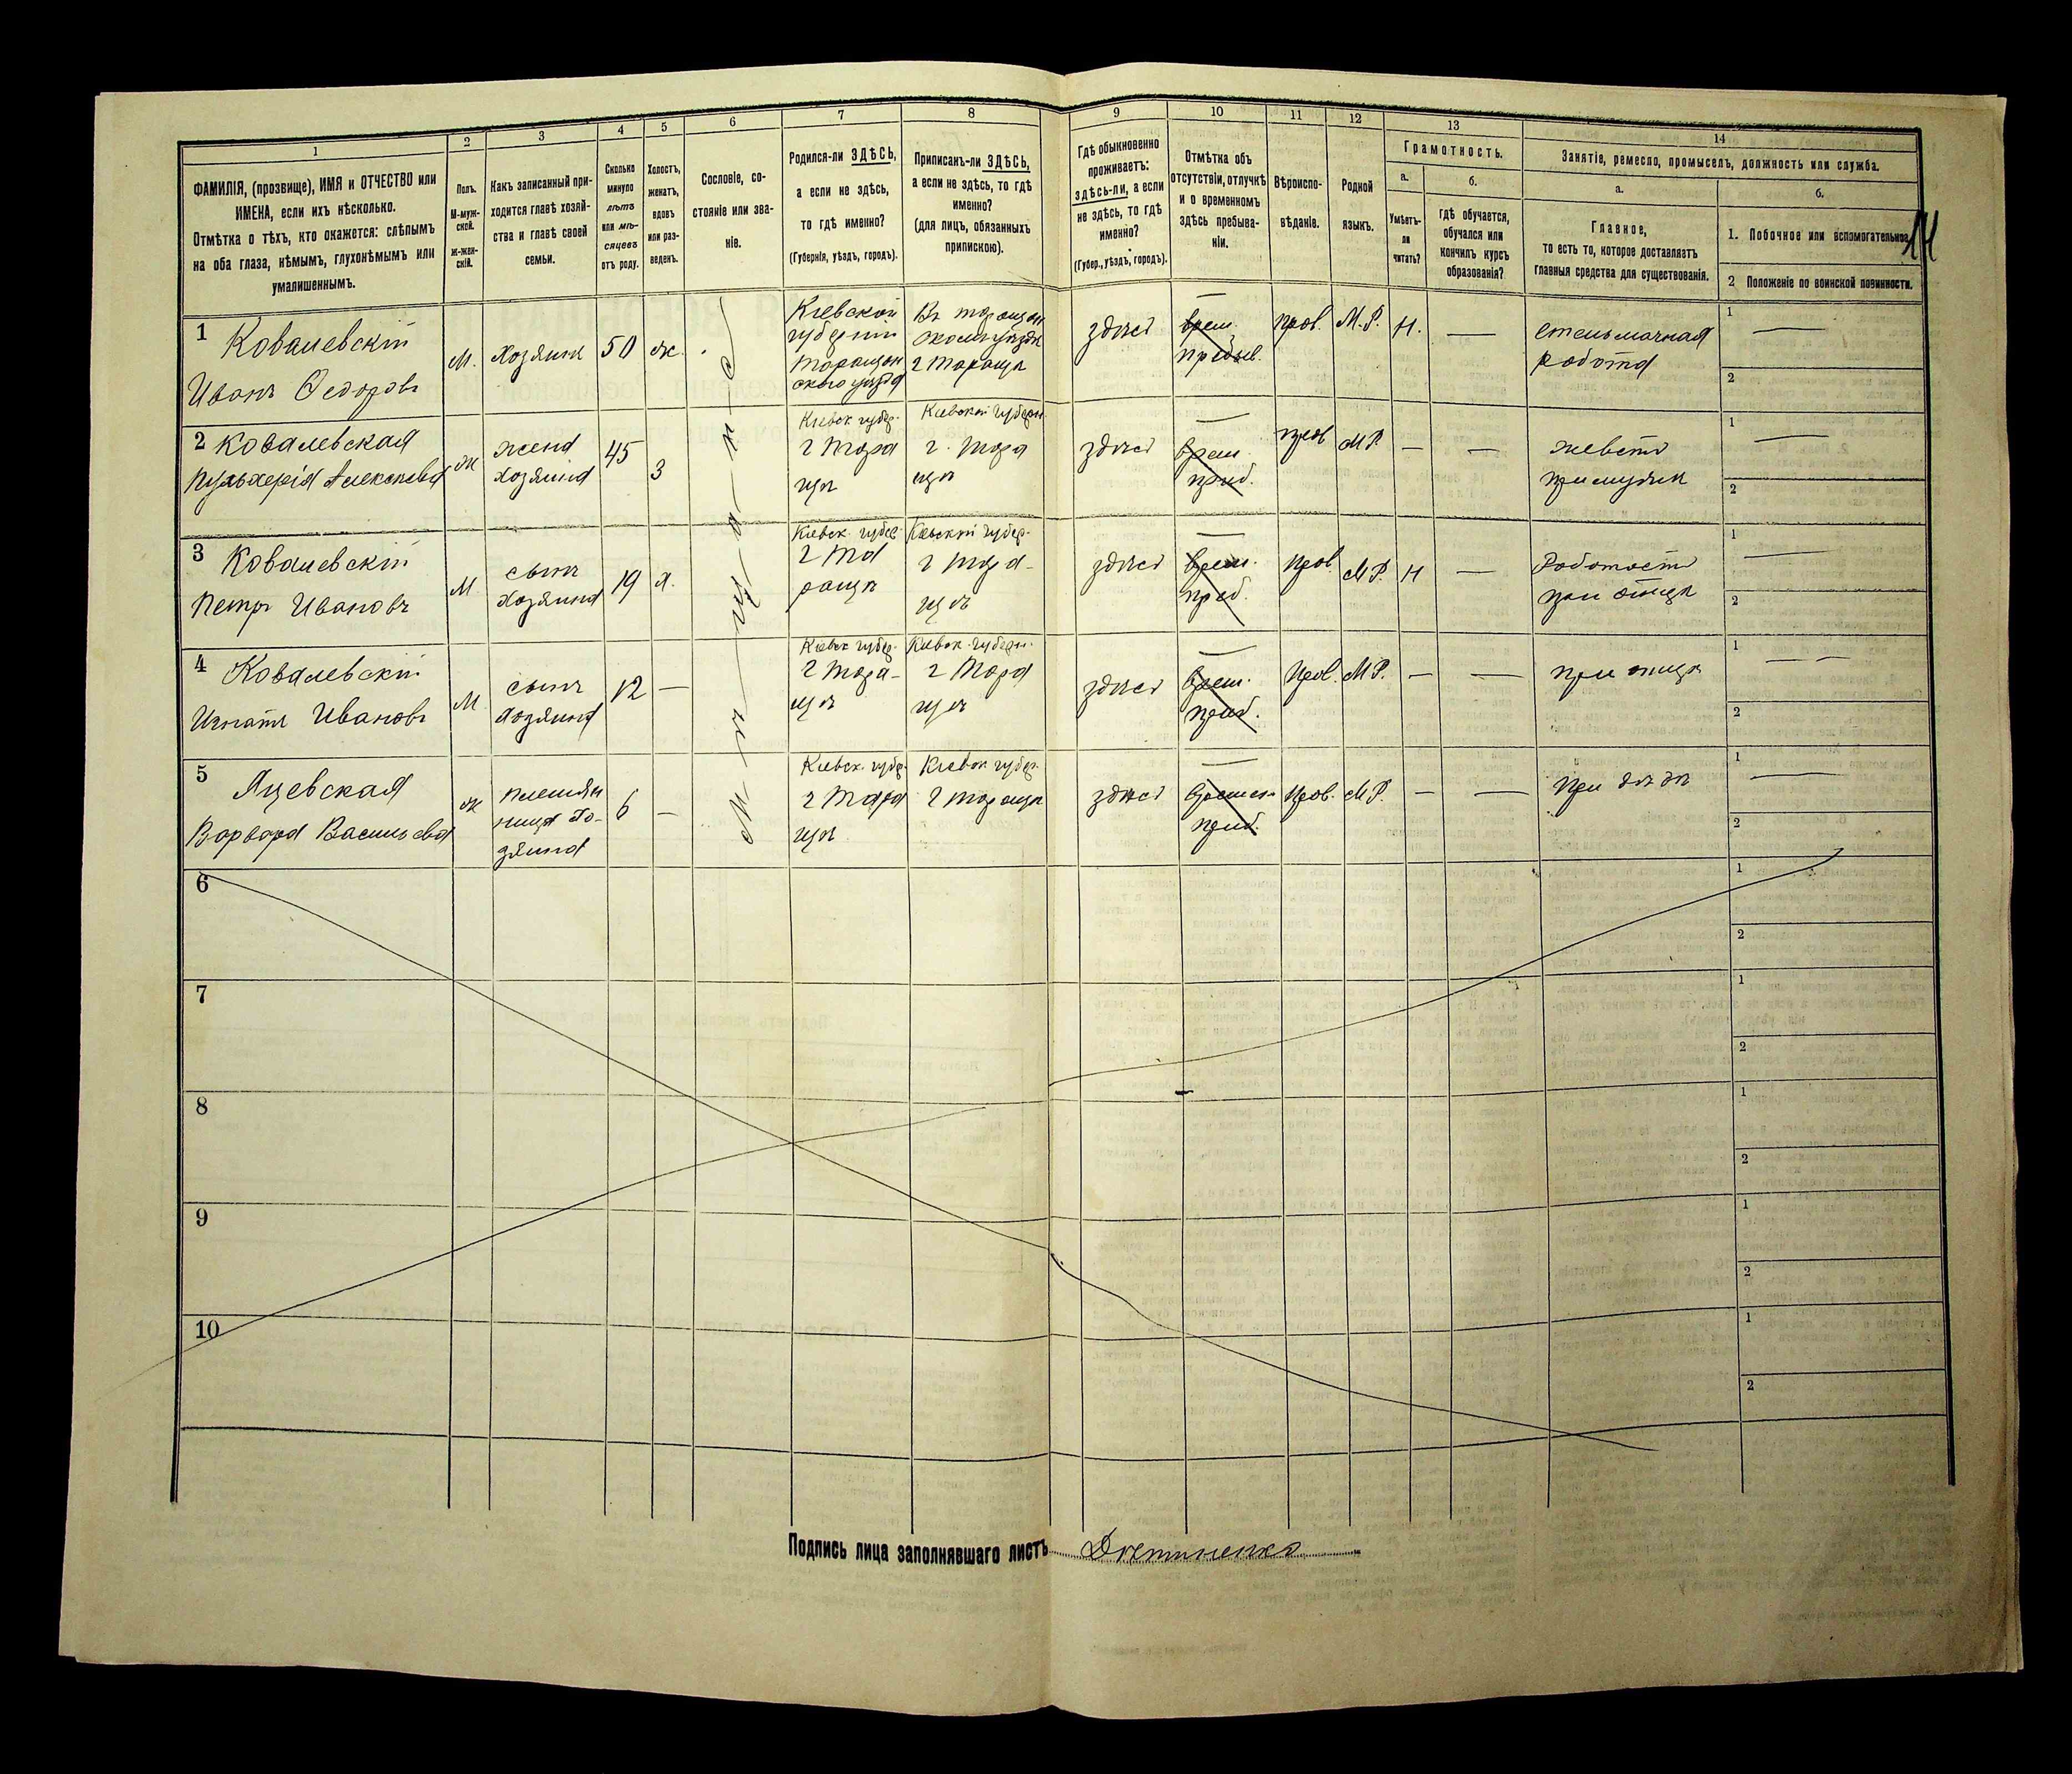 1 2 3 4 5 6 7 8 9 10 11 12 13 14
ФАМИЛІЯ, (прозвище), ИМЯ и ОТЧЕСТВО или
ИМЕНА, если ихъ нѣсколько.
Отмѣтка о тѣхъ, кто окажется: слѣпымъ
на оба глаза, нѣмымъ, глухонѣмымъ или
умалишеннымъ.
Полъ.
М-муж-
ской.
Ж-жен-
скій.
Какъ записанный при-
ходится главѣ хозяй-
ства и главѣ своей
семьи.
Сколько
минуло
лѣтъ
или мѣ-
сяцевъ
отъ роду.
Холостъ,
женатъ,
вдовъ
или раз-
веденъ.
Сословіе, со-
стояніе или зва-
ніе.
Родился-ли ЗДѢСЬ,
а если не здѣсь,
то гдѣ именно?
(Губернія, уѣздъ, городъ).
Приписанъ-ли ЗДѢСЬ,
а если не здѣсь, то гдѣ
именно?
(для лицъ, обязанныхъ
припискою).
Гдѣ обыкновенно
проживаетъ:
ЗДѢСЬ-ли, а если
не здѣсь, то гдѣ
именно?
(Губер., уѣздъ, городъ).
Отмѣтка объ
отсутствіи, отлучкѣ
и о временномъ
здѣсь пребыва-
ніи.
Вѣроиспо-
вѣданіе.
Родной
языкъ.
Грамотность.
а.
Умѣетъ-
ли
читать?
б.
гдѣ обучается,
обучался или
кончилъ курсъ
образованія?
Занятіе, ремесло, промыселъ, должность или служба.
а.
Главное,
то есть то, которое доставляетъ
главныя средства для существованія.
б.
1. Побочное или вспомогательное.
2 Положеніе по воинской повинности.
1
Ковалевскій
Иванъ Ѳедоровъ
М.
Хозяинъ
50
ж.
Кіевской
губерніи
Таращан
скаго уѣзда
Въ таращан
скомъ уѣздѣ
г Тараща
здѣсь
врем.
пребыв.
прав.
М.Р.
Н.
—
стельмачная
работа
1 —
2
2 Ковалевская
Пульхерія Алексѣева
Ж
жена
хозяина
45
З
Кіевск губер.
г Тара
щѣ
Кіевской губерн.
г. Тара
щѣ
здѣсь
врем.
преб.
прав
М.Р.
—
—
живетъ
при мужѣ
1 —
2
3 Ковалевскій
Петръ Ивановъ
М.
сынъ
хозяина
19
х.
Кіевск. губер.
г Та
ращѣ
Кіевской губер.
г Тара-
щѣ
здѣсь
врем.
преб.
прав.
М.Р.
Н
—
Работаетъ
при отцѣ
1 —
2
4 Ковалевскій
Игнатъ Ивановъ
М.
сынъ
хозяина
12
—
Кіевск губер.
г Тара-
щѣ
Кіевск. губерн.
г Тара
щѣ
здѣсь
врем.
преб.
Прав.
М.Р.
—
—
при отцѣ
1 —
2
5
Яцевская
Варвара Васильева
Ж
племян
ница хо-
зяина
6
—
Кіевск. губер.
г Тара
щѣ
Кіевск губер.
г Таращѣ
здѣсь
времен.
преб.
Прав.
М.Р.
—
—
при дядѣ
1 —
2
м-ѣ-щ-а-н-е
6
1
2
7
1
2
8
1
2
9
1
2
10
1
2
Подпись лица заполнявшаго листъ